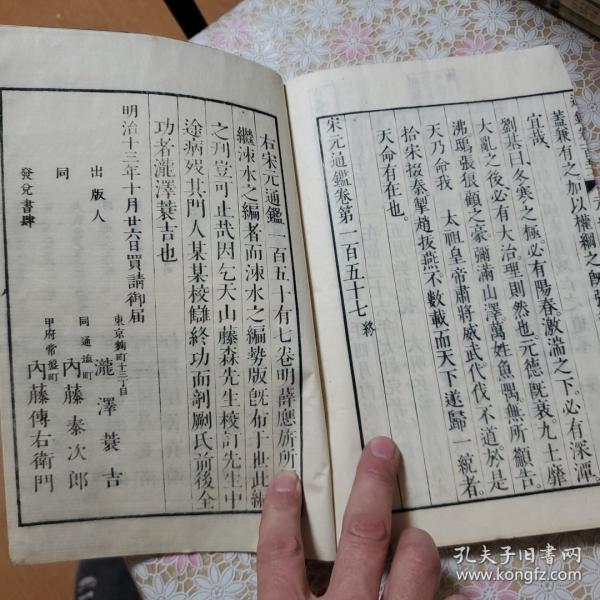 蓋兼有之加以權綱之
宜哉
劉基曰冬寒之極必有陽春激湍之下必有深潭
大亂之後必有大治理則然也元德既衰九土靡
沸鴟張狼顧之豪彌滿山澤萬姓魚喁無所籲告
天乃命我 太祖皇帝肅將威武代伐不道於是
拾宋掇秦掣趙拔燕不數載而天下遂歸一統者
天命有在也
宋元通鑑卷第一百五十七 終
右宋元通鑑一百五十有七卷明薛應旂所
繼涑水之編者而涑水之編勢版既布于世此編
之刋豈可止哉因乞天山藤森先生校訂先生中
途病歿其門人某某校讎終功而剞劂氏前後全
功者瀧澤蓑吉也
明治十三年十月廿六日買請御届
東京麴町十三丁目
出版人 瀧澤蓑吉
同通塩町
同 內藤泰次郎
甲府常盤町
發兌書肆 內藤傳右衛門
孔夫子旧書网
www.kongfz.com